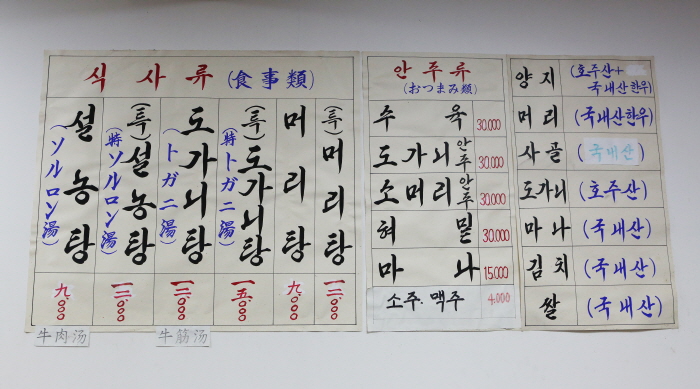 식사류(食事類)
설농탕
(ソルロン湯)
九,000
(특)설농탕
(特ソルロン湯)
一二,000
도가니탕
(トガニ湯)
一二,000
(특)도가니탕
(特トガニ湯)
一五,000
머리탕
九,000
(특)머리탕
一二,000
牛肉汤
牛筋汤
안주류
(おつまみ類)
수육 30.000
도가니안주 30.000
소머리안주 30.000
혀밑 30.000
마나 15.000
소주.맥주 4.000
양지 (호주산+
국내산한우)
머리 (국내산한우)
사골 (국내산)
도가니 (호주산)
마나 (국내산)
김치 (국내산)
쌀 (국내산)